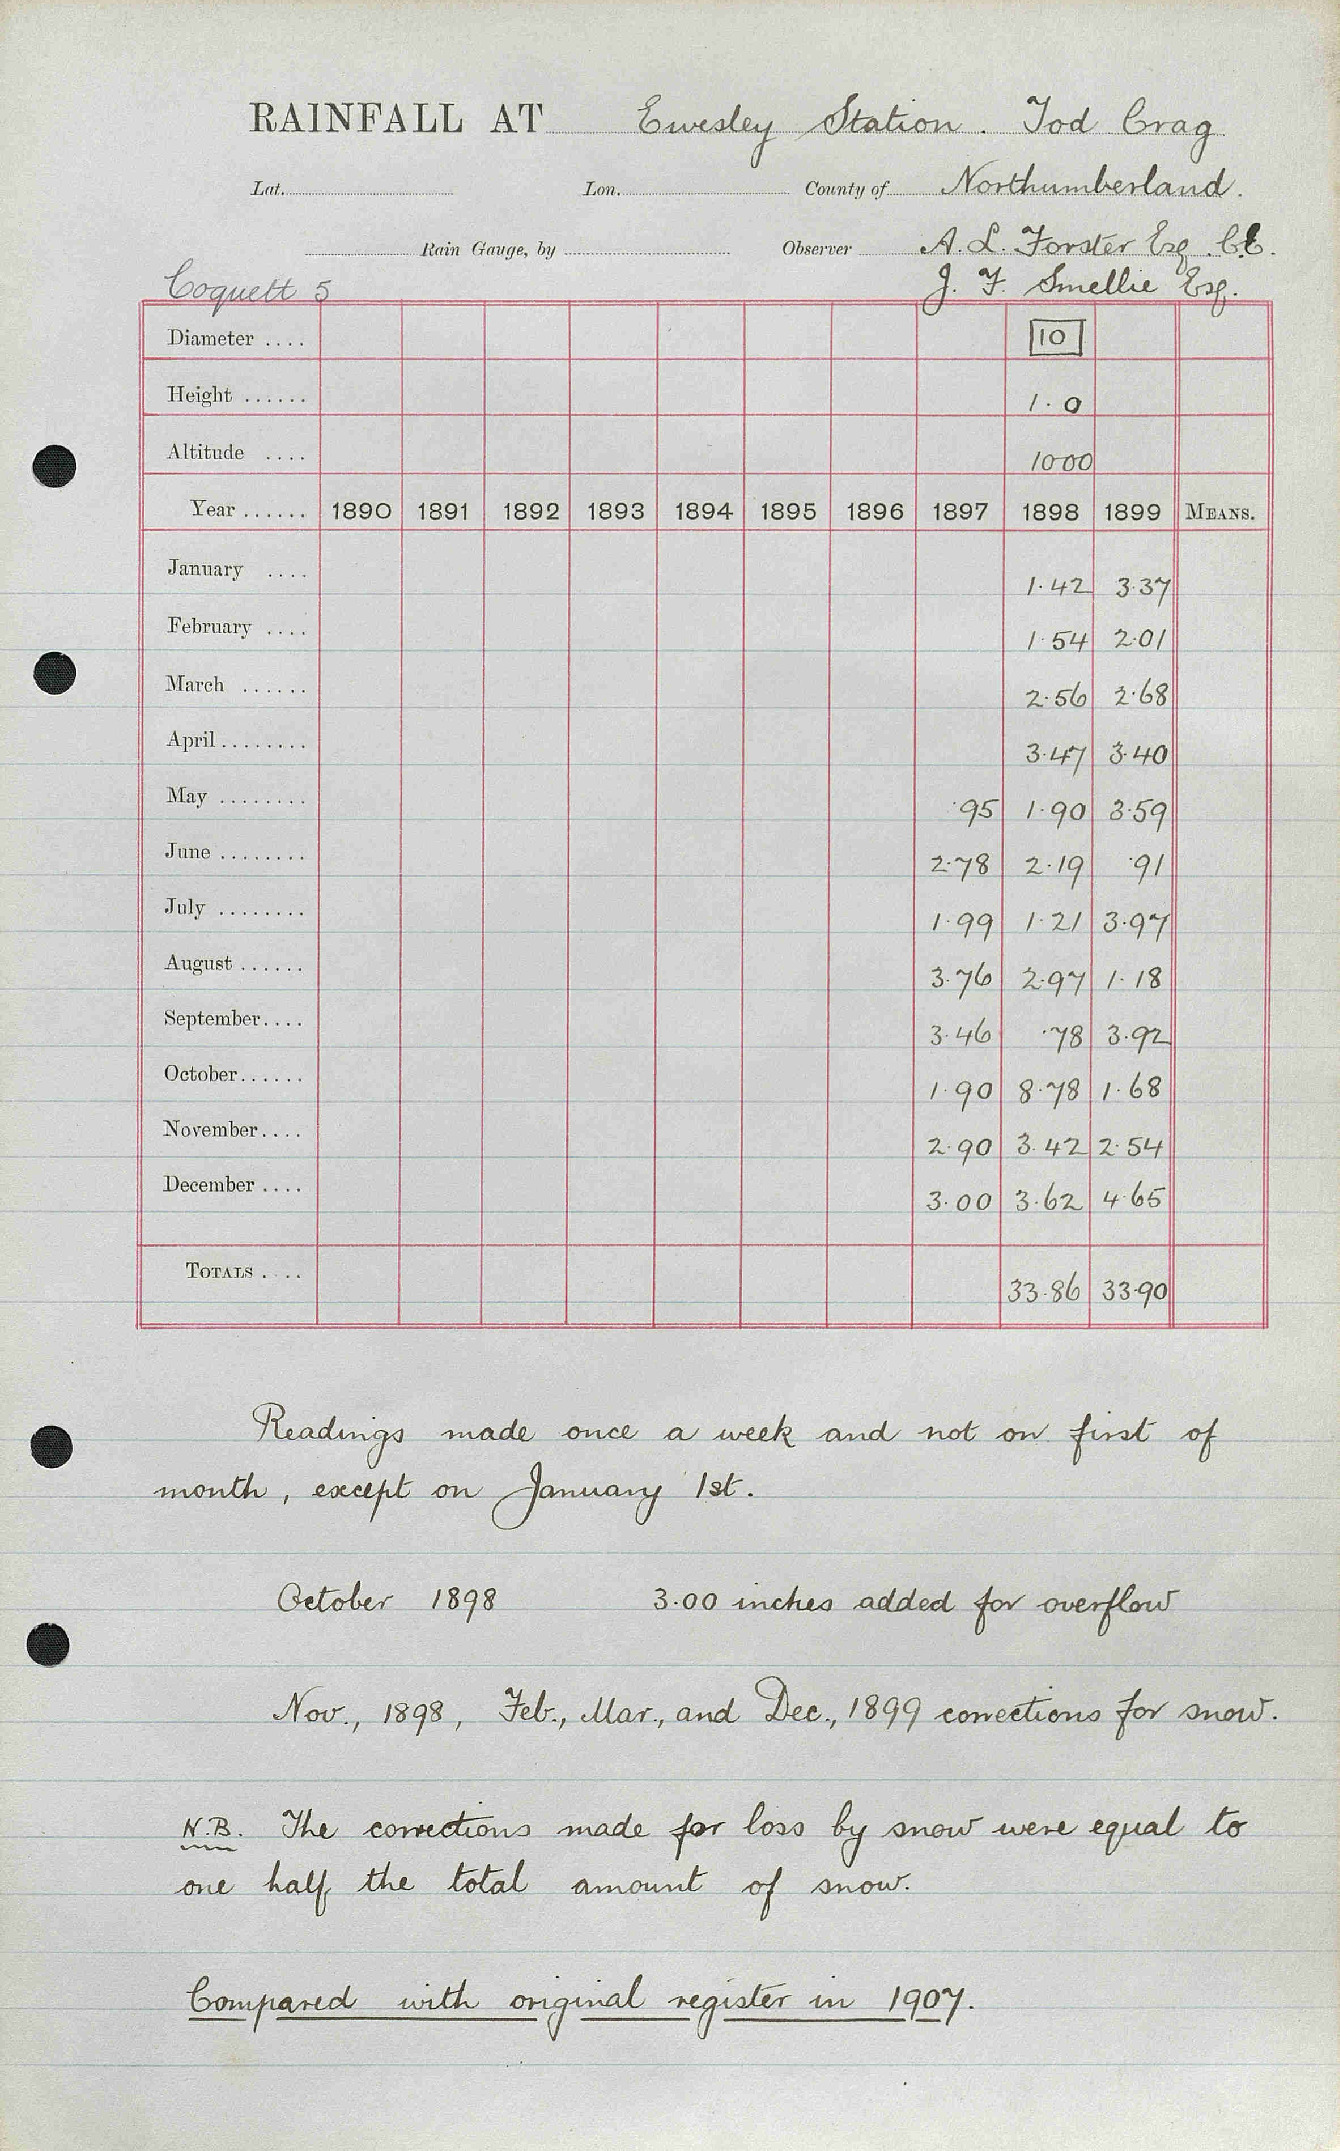 RAINFALL AT Ewesley Station. Tod Crag
Lat. Lon. County of Northumberland.
Rain Gauge, by Observer A. L. Forster Esq. C.E.
Coquett 5 J. F. Smellie Esq.
Diameter .... 10
Height ...... 1.0
Altitude .... 1000
Year ...... 1890 1891 1892 1893 1894 1895 1896 1897 1898 1899 MEANS.
January .... 1.42 3.37
February .... 1.54 2.01
March ...... 2.56 2.68
April ........ 3.47 3.40
May ........ .95 1.90 3.59
June ........ 2.78 2.19 .91
July ........ 1.99 1.21 3.97
August ...... 3.76 2.97 1.18
September.... 3.46 .78 3.92
October...... 1.90 8.78 1.68
November.... 2.90 3.42 2.54
December .... 3.00 3.62 4.65
TOTALS .... 33.86 33.90
Readings made once a week and not on first of
month, except on January 1st.
October 1898 3.00 inches added for overflow
Nov., 1898, Feb., Mar., and Dec., 1899 corrections for snow.
N.B. The corrections made for loss by snow were equal to
one half the total amount of snow.
Compared with original register in 1907.